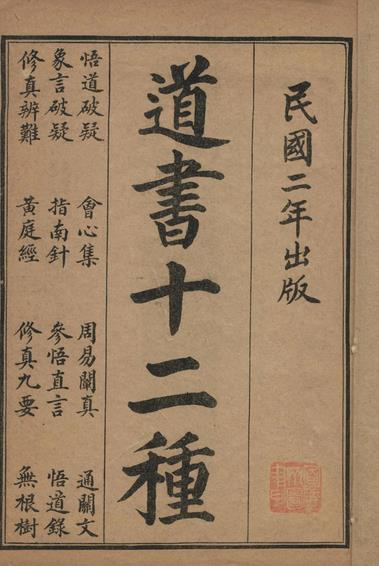 民國二年出版
道書十二種
悟道破疑 會心集 周易闡真 通關文
象言破疑 指南針 參悟直言 悟道錄
修真辨難 黃庭經 修真九要 無根樹